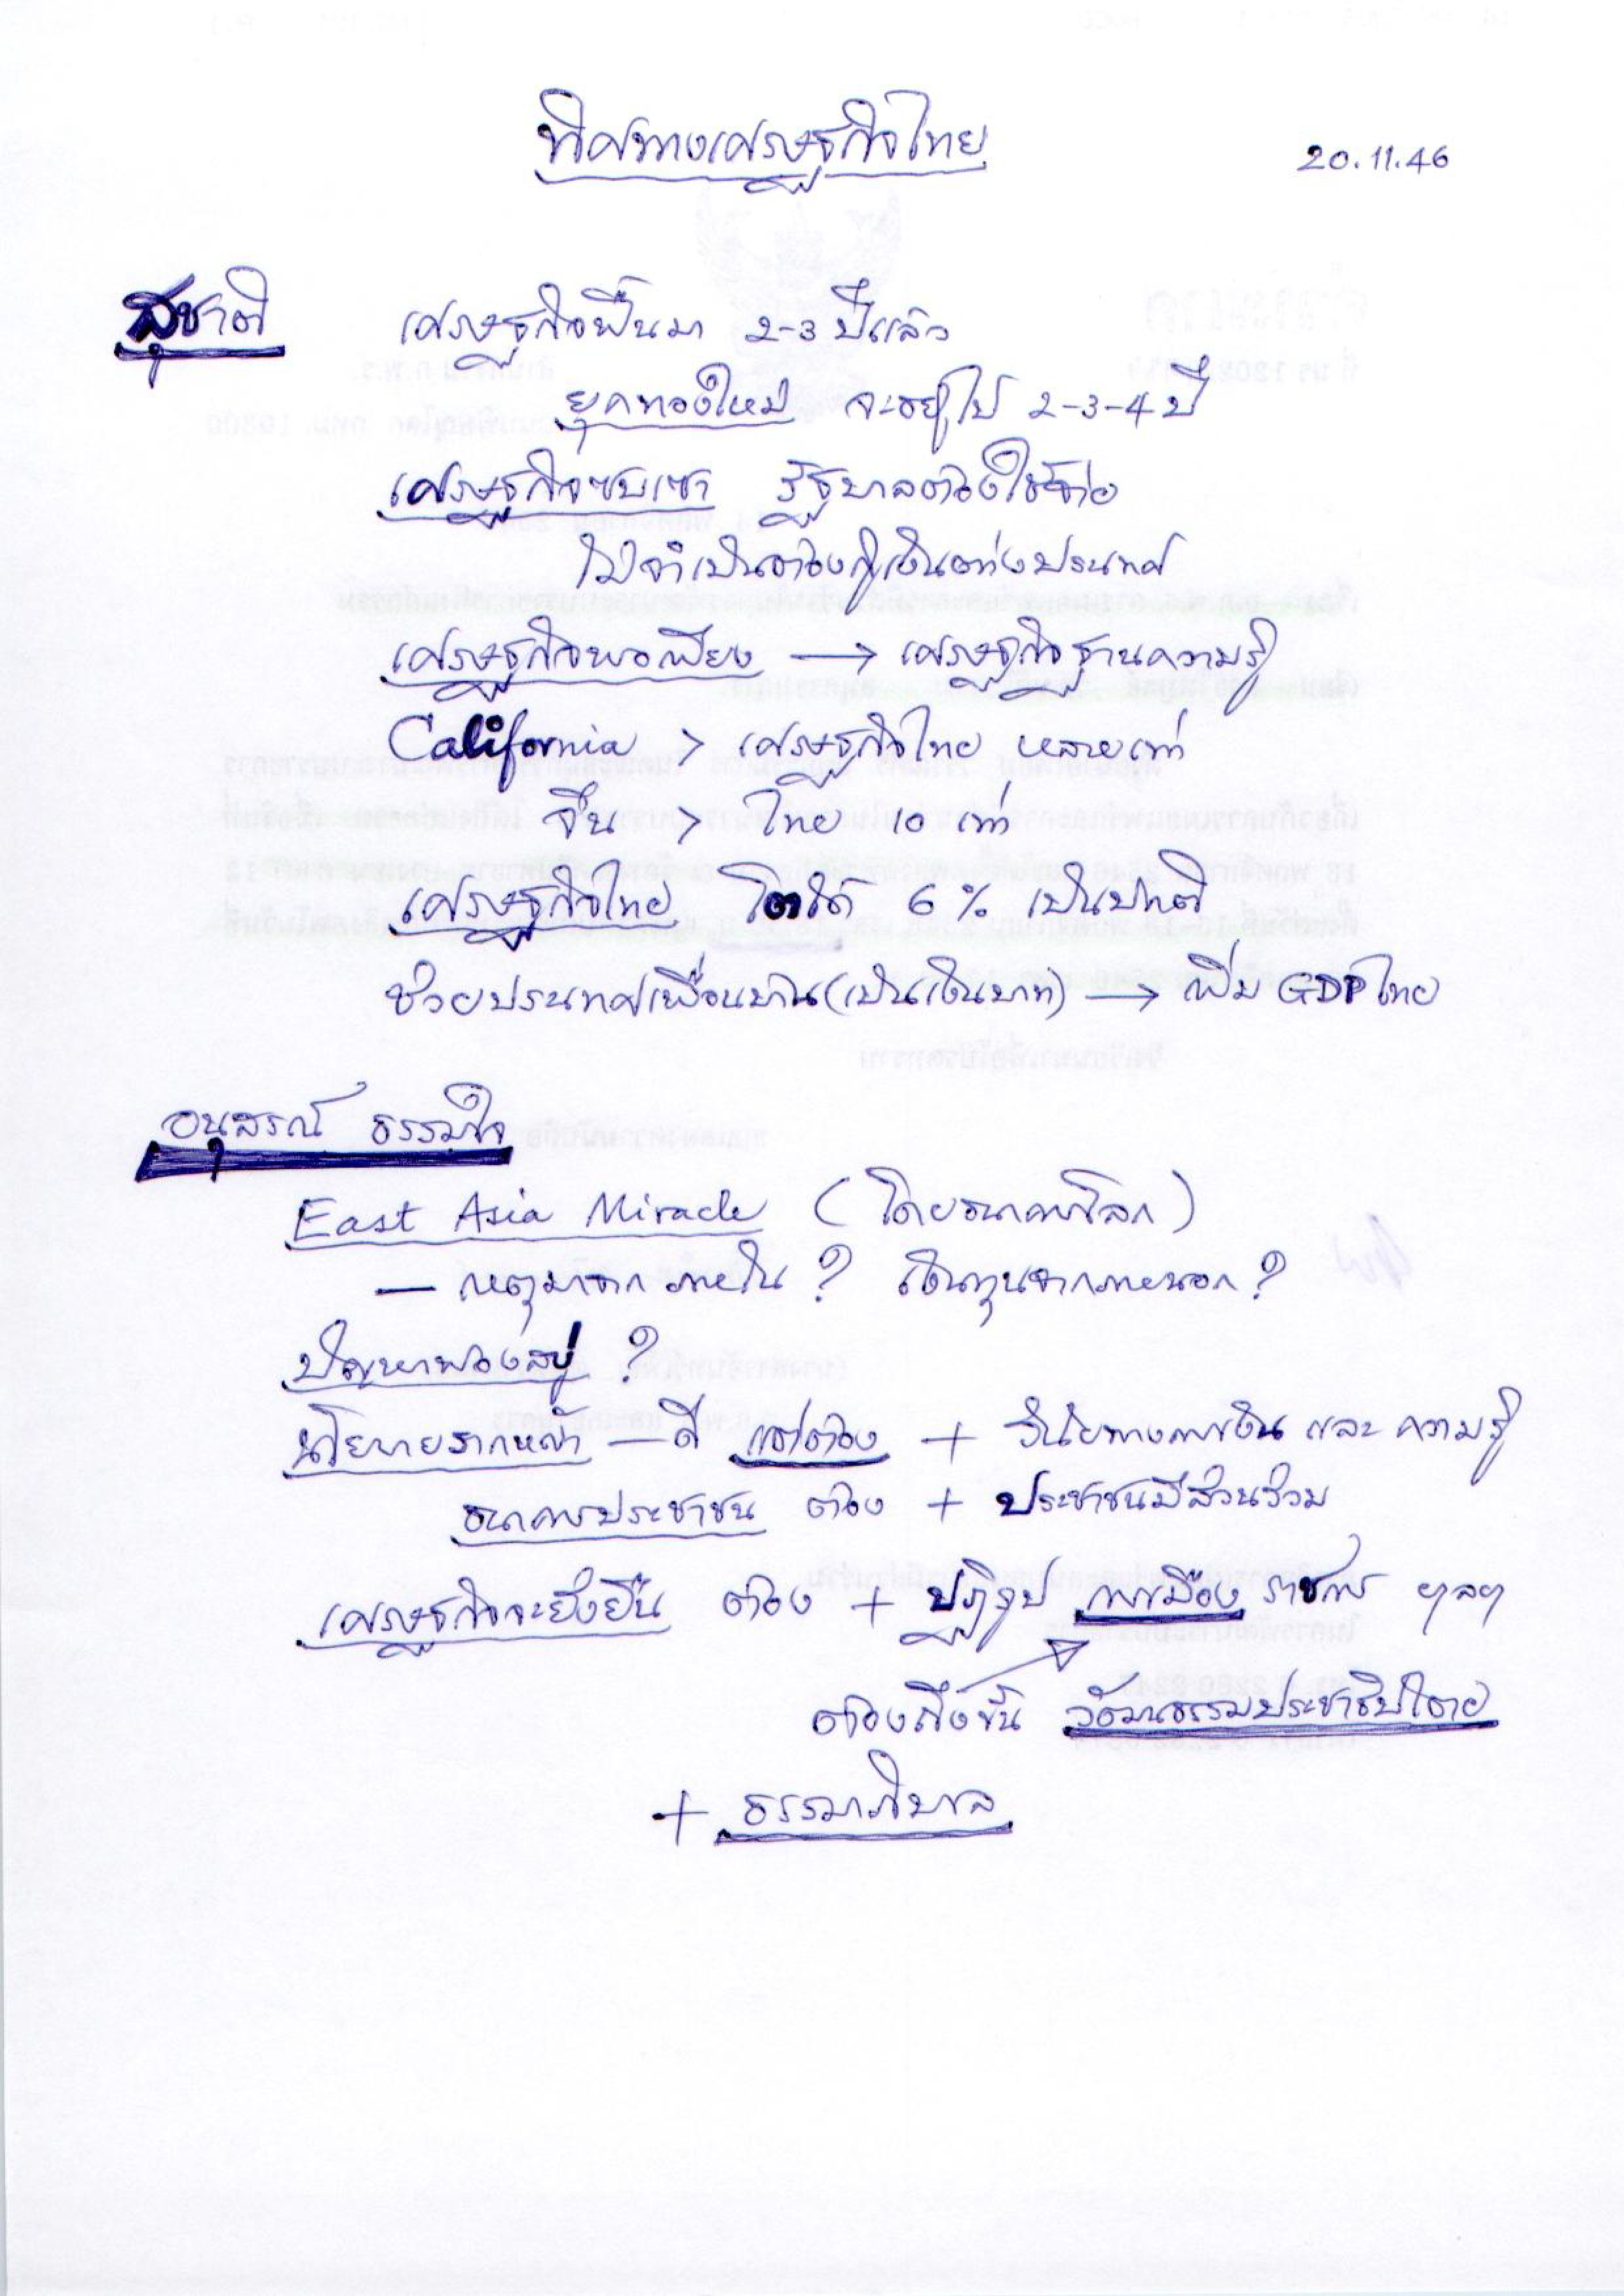 ทิศทางเศรษฐกิจไทย
20.11.46
สุชาติ เศรษฐกิจฟื้นมา 2-3 ปีแล้ว
ยุคทองใหม่ จะอยู่ไป 2-3-4 ปี
เศรษฐกิจซบเซา รัฐบาลต้องใช้จ่าย
ไม่จำเป็นต้องกู้เงินต่างประเทศ
เศรษฐกิจพอเพียง → เศรษฐกิจฐานความรู้
California > เศรษฐกิจไทย หลายเท่า
จีน > ไทย 10 เท่า
เศรษฐกิจไทย โตได้ 6% เป็นปกติ
ช่วยประเทศเพื่อนบ้าน (เป็นเงินบาท) → เพิ่ม GDP ไทย
อนุสรณ์ ธรรมใจ
East Asia Miracle (โดยธนาคารโลก)
— เหตุมาจากภายใน ? เงินทุนจากภายนอก ?
ปัญหาฟองสบู่ ?
นโยบายรากหญ้า — ดี แต่ต้อง + วินัยทางการเงิน และ ความรู้
ธนาคารประชาชน ต้อง + ประชาชนมีส่วนร่วม
เศรษฐกิจจะยั่งยืน ต้อง + ปฏิรูป การเมือง ราชการ ฯลฯ
ต้องถึงขั้น วัฒนธรรมประชาธิปไตย
+ ธรรมาภิบาล